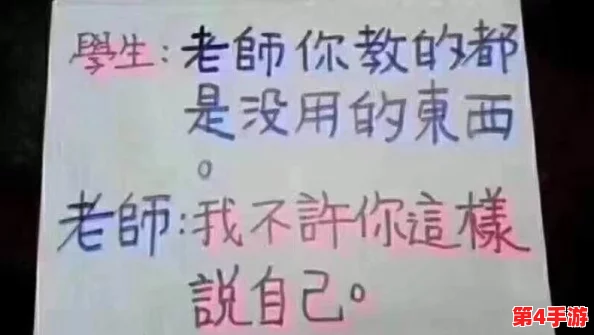 學生:老師你教的都
是没用的東西
。
老師:我不許你這樣
說自己。
第4手游